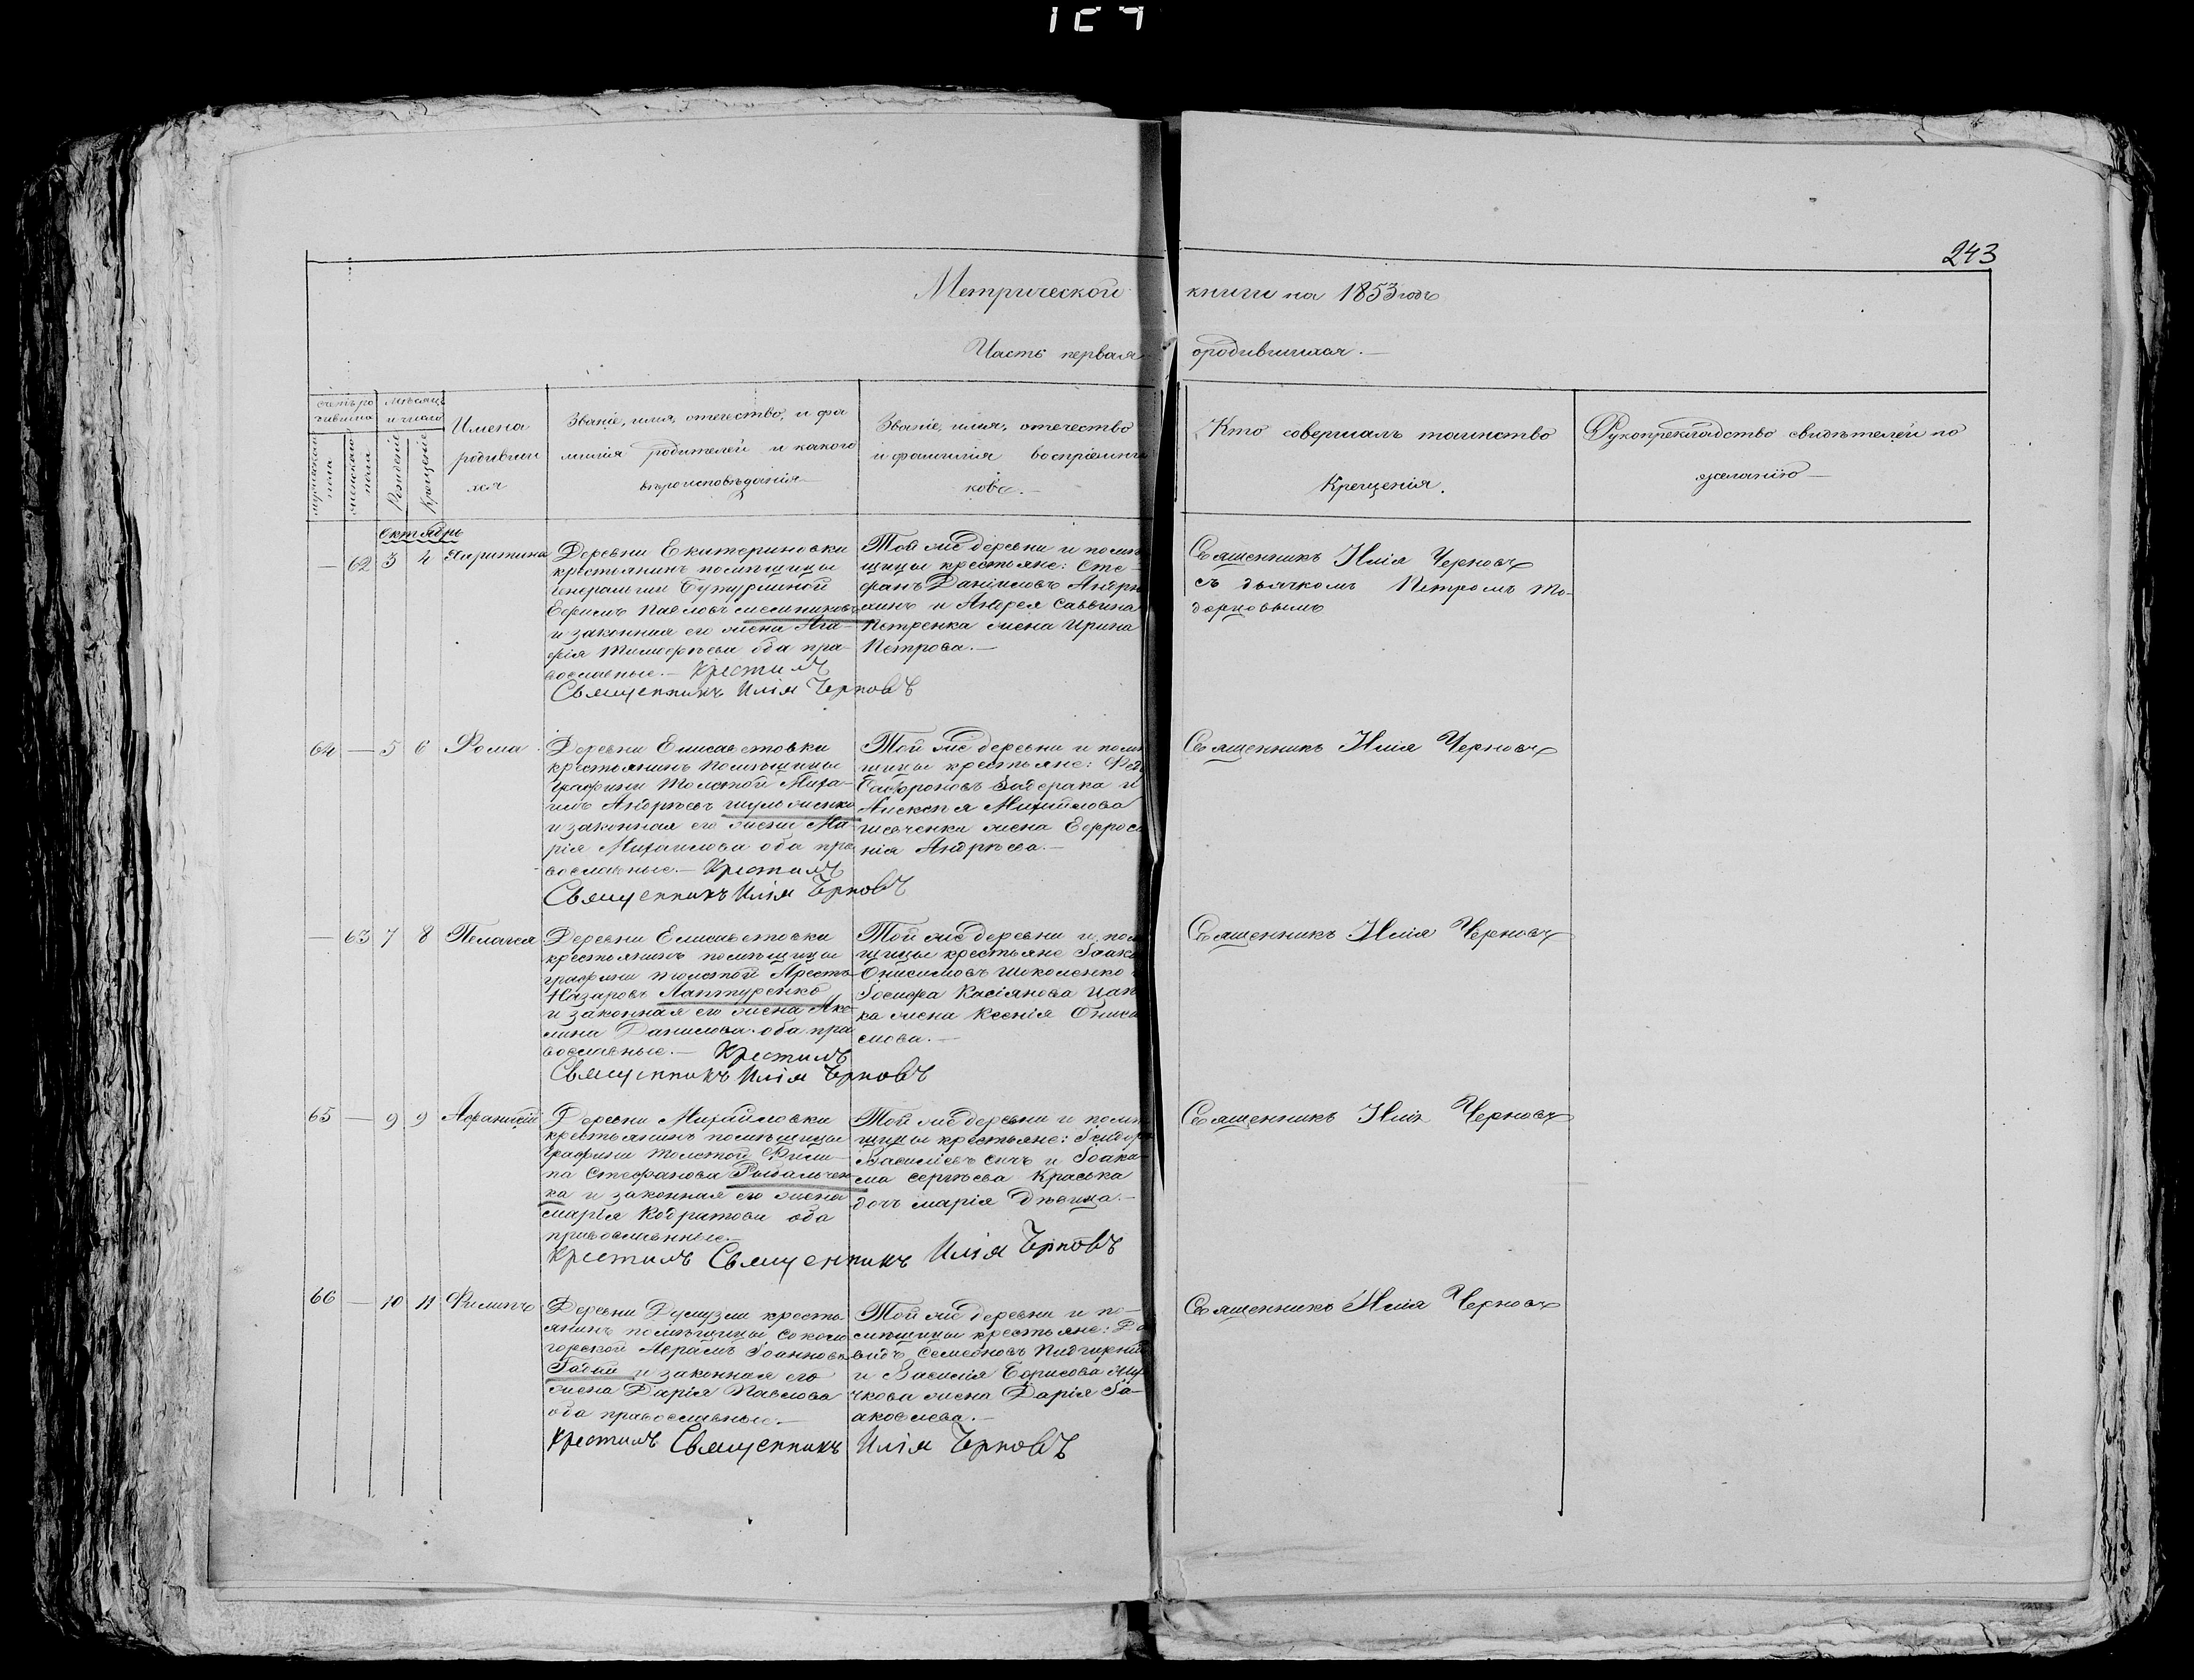 243
Метрической книги на 1853 годъ
Часть первая о родившихся.—
Счетъ ро
дившихся
мужескаго
пола
женскаго
пола
Мѣсяцъ
и число
Рожденія
Крещенія
Имена
родивших
ся
Званіе, имя, отечество, и фа
милія родителей и какого
вѣроисповѣданія
Званіе, имя, отечество
и фамилія воспріемни
ковъ.—
Кто совершалъ таинство
Крещенія.
Рукоприкладство свидѣтелей по
желанію—
Октябрь
— 62 3 4 Харитина
Деревни Екатериновки
крестьянинъ помѣщицы
генеральши Бутурлиной
Ефимъ Павловъ мельниковъ
и законная его жена Ага-
фія Тимофѣева оба пра-
вославные.— Крестилъ
Священникъ Илія Черновъ
Той же деревни и помѣ
щицы крестьяне: Сте-
фанъ Даніиловъ Андрю
хинъ и Андрея Саввина
Петренка жена Ирина
Петрова.—
Священникъ Илія Черновъ
съ дьячкомъ Петромъ То-
дорновымъ
64 — 5 6 Фома
Деревни Елисаветовки
крестьянинъ помѣщицы
графини Толстой Миха-
илъ Андрѣевъ шульженко
и законная его жена Ма-
рія Михаилова оба пра
вославные.— Крестилъ
Священникъ Илія Черновъ
Той же деревни и помѣ
щицы крестьяне:
Сафроновъ Задерака и
Алексѣя Михайлова
жена Евфроси
нія Андрѣева.—
Священникъ Илія Черновъ
— 63 7 8 Пелагея
Деревни Елисаветовки
крестьянинъ помѣщицы
графини толстой Арестъ
Назаровъ Лаптуренко
и законная его жена Аку-
лина Данилова оба пра
вославные.— Крестилъ
Священникъ Илія Черновъ
Той же деревни и пом
щицы крестьяне
Онисимовъ Шоколенко
Іосифа Касіянова Цап
ка жена Ксенія Ониси
мова.—
Священникъ Илія Черновъ
65 — 9 9 Афанасій
Деревни Михайловки
крестьянинъ помѣщицы
графини Толстой Фили
па Стефанова Рыбальчен
ка и законная его жена
марія Кодратова оба
православные.—
Крестилъ Священникъ Илія Черновъ
Той же деревни и помѣ
щицы крестьяне: Ісидоръ
Василіевъ Сичъ и Іоаки-
ма Сергѣева Краська
дочь марія дѣвица.—
Священникъ Илія Черновъ
66 — 10 11 Филипъ
Деревни кресть
янинъ помѣщицы Соколо
горской Авраамъ Іоанновъ
Гадай и законная его
жена Дарія Павлова
оба православные.—
Крестилъ Священникъ Илія Черновъ
Той же деревни и по-
мѣщицы крестьяне: Да
видъ Семеоновъ Пидгирний
и Василія Борисова
чкова жена Дарія Іа-
ковлева.—
Священникъ Илія Черновъ